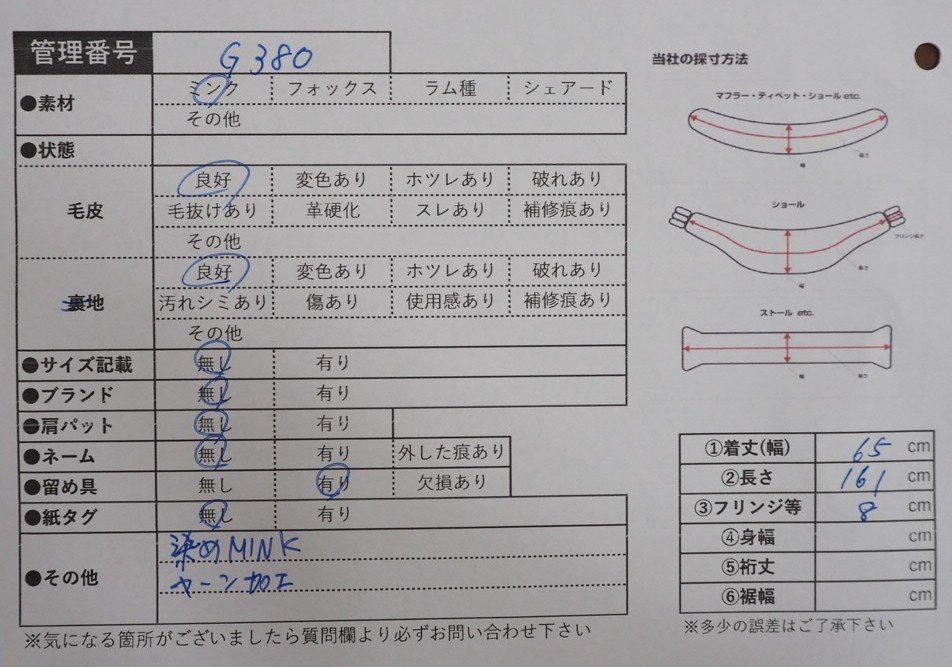 管理番号 G380
●素材 ミンク フォックス ラム種 シェアード
その他
●状態
毛皮 良好 変色あり ホツレあり 破れあり
毛抜けあり 革硬化 スレあり 補修痕あり
その他
裏地 良好 変色あり ホツレあり 破れあり
汚れシミあり 傷あり 使用感あり 補修痕あり
その他
●サイズ記載 無し 有り
●ブランド 無し 有り
●肩パット 無し 有り
●ネーム 無し 有り 外した痕あり
●留め具 無し 有り 欠損あり
●紙タグ 無し 有り
●その他 染めMINK
ヤーン加工
※気になる箇所がございましたら質問欄より必ずお問い合わせ下さい
当社の採寸方法
マフラー・ティペット・ショール etc.
長さ
幅
ショール
フリンジ長さ
長さ
幅
ストール etc.
幅
長さ
①着丈(幅) 65 cm
②長さ 161 cm
③フリンジ等 8 cm
④身幅 cm
⑤裄丈 cm
⑥裾幅 cm
※多少の誤差はご了承下さい